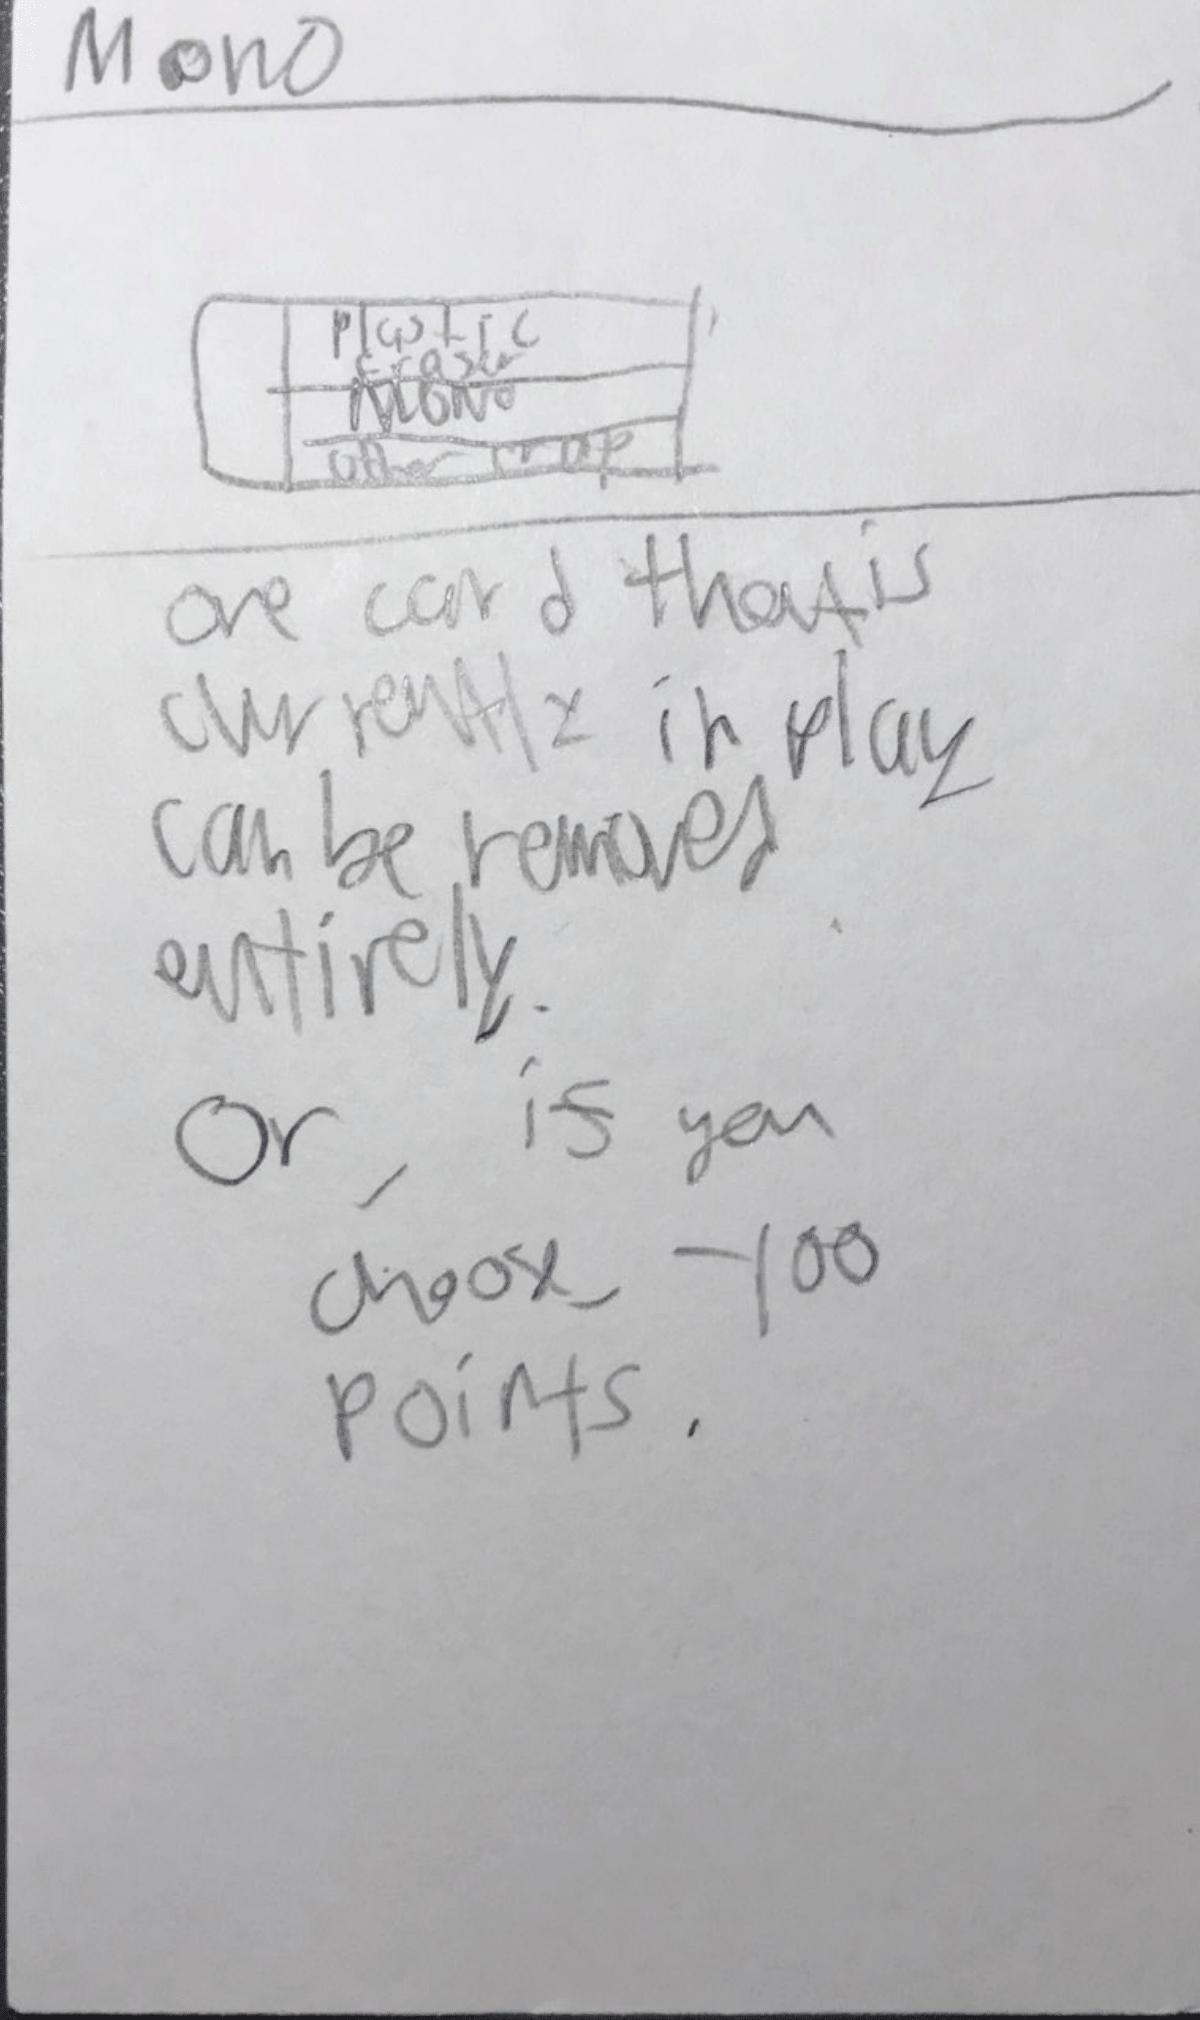 Mono
plastic
eraser
MONO
other crap
one card that is
currently in play
can be removed
entirely.
Or, if you
choose -100
points.